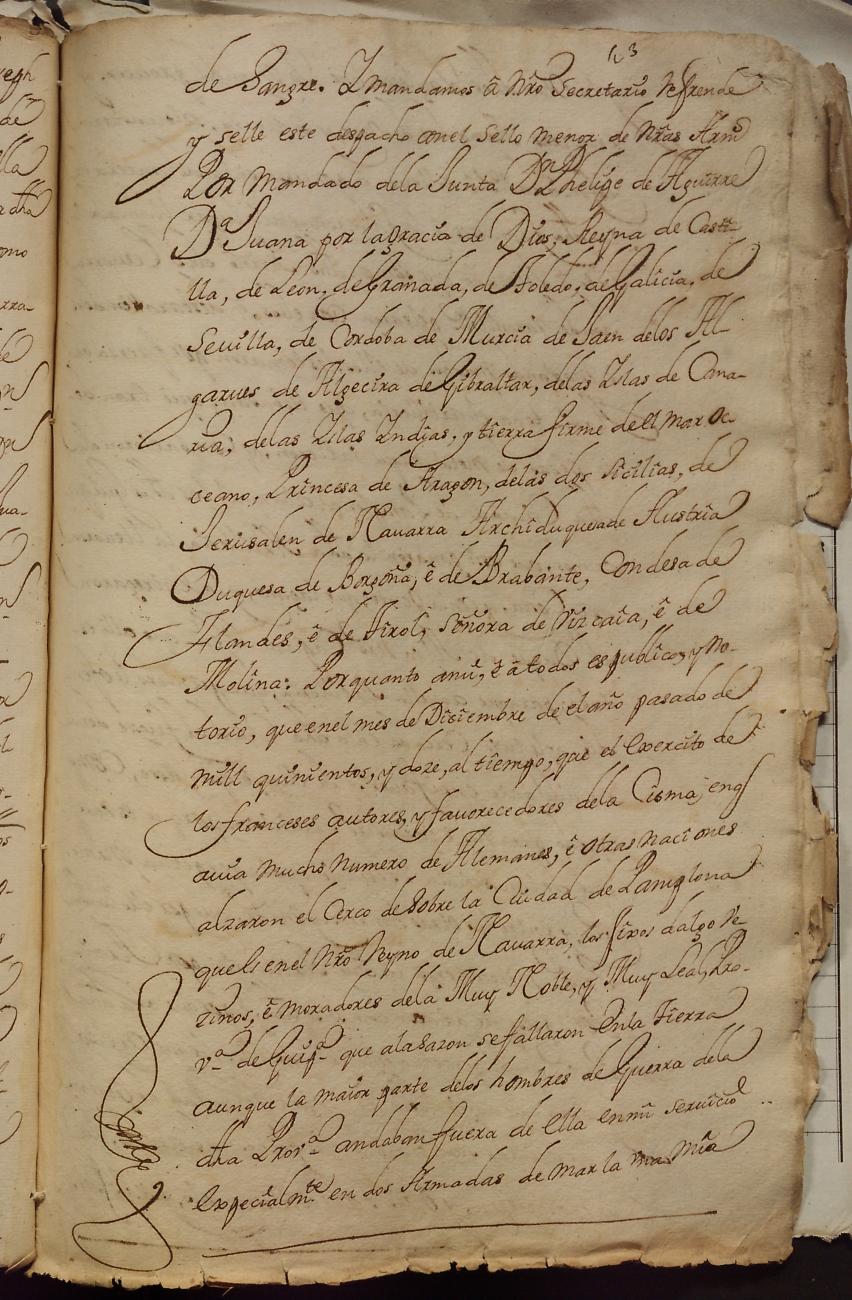 63
de Sangre. Y mandamos â Nrõ Secretario Refrende
y selle este despacho conel Sello menor de Nras Arm^s
Por Mandado dela Junta D^n Phelipe de Aguirre
D^a Juana por la Gracia de Dios, Reyna de Casti-
lla, de Leon, de Granada, de Toledo, de Galicia, de
Sevilla, de Cordoba de Murcia de Jaen delos Al-
garves de Algecira de Gibraltar, delas Yslas de Cana-
ria, delas Yslas Yndias, y tierra firme dell mar oc-
ceano, Princesa de Aragon, delas dos Sicilias, de
Jerusalen de Navarra Archiduquesa de Austria
Duquesa de Borgoña, ê de Brabante, Condesa de
Flandes, ê de Tirol, Señora de Vizcaia, ê de
Molina: Porquanto ami, ê â todos es publico, y no-
torio, que enel mes de Diciembre de el año pasado de
mill quinientos, y doze, al tiempo, que el Exercito de
los franceses autores, y favorecedores dela Cisma, enq^l
avia mucho numero de Alemanes, ê otras naciones
alzaron el Cerco de sobre la Ciudad de Pamplona
que es enel Nrõ Reyno de Navarra, los fixos dalgo Ve-
zinos, ê moradores dela Muy Noble, y Muy Leal, Pro-
v^a de Guip^a que ala sazon se fallaron en la Tierra
aunque la maior parte delos hombres de Guerra dela
dha Prov^a andaban fuera de ella en mi servicio
Expecialm^te en dos Armadas de mar la una mia